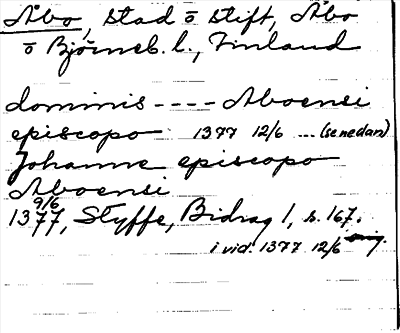 Åbo, stad o stift, Åbo
o Björneb. l., Finland
dominis ---- Aboensi
episcopo 1377 12/6 ... (se nedan)
Johanne episcopo
Aboensi
9/6
1377, Styffe, Bidrag 1, s. 167.
i vid. 1377 12/6 orig.